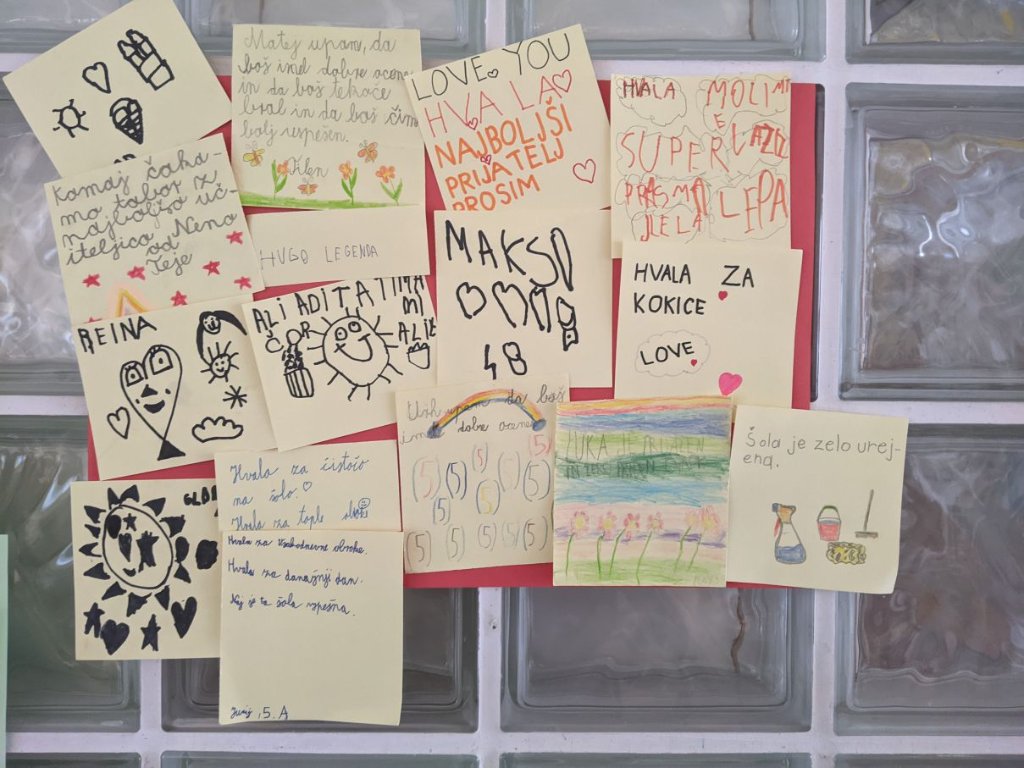 Matej upam, da
boš imel dobre ocene
in da boš tekoče
bral in da boš čim
bolj uspešen.
LOVE YOU
HVALA
NAJBOLJŠI
PRIJATELJ
PROSIM
HVALA
MOLIM
SUPER
LEPA
Komaj čaka-
mo tabor z
najboljšo uč-
iteljico Neno
od
Teje
HUGO LEGENDA
MAKSO
48
HVALA ZA
KOKICE
LOVE
NEINA
ALI ADITA TI
upam da boš
imel dobre ocene
(5)
(5) (5) (5) (5)
(5) (5)
(5) (5) (5) (5) (5)
LUKA JE
Šola je zelo urej-
ena.
Hvala za čistočo
na šolo.
Hvala za tople
Hvala za vsakodnevne
Hvala za današnji dan.
Naj je ta šola uspešna.
5. A